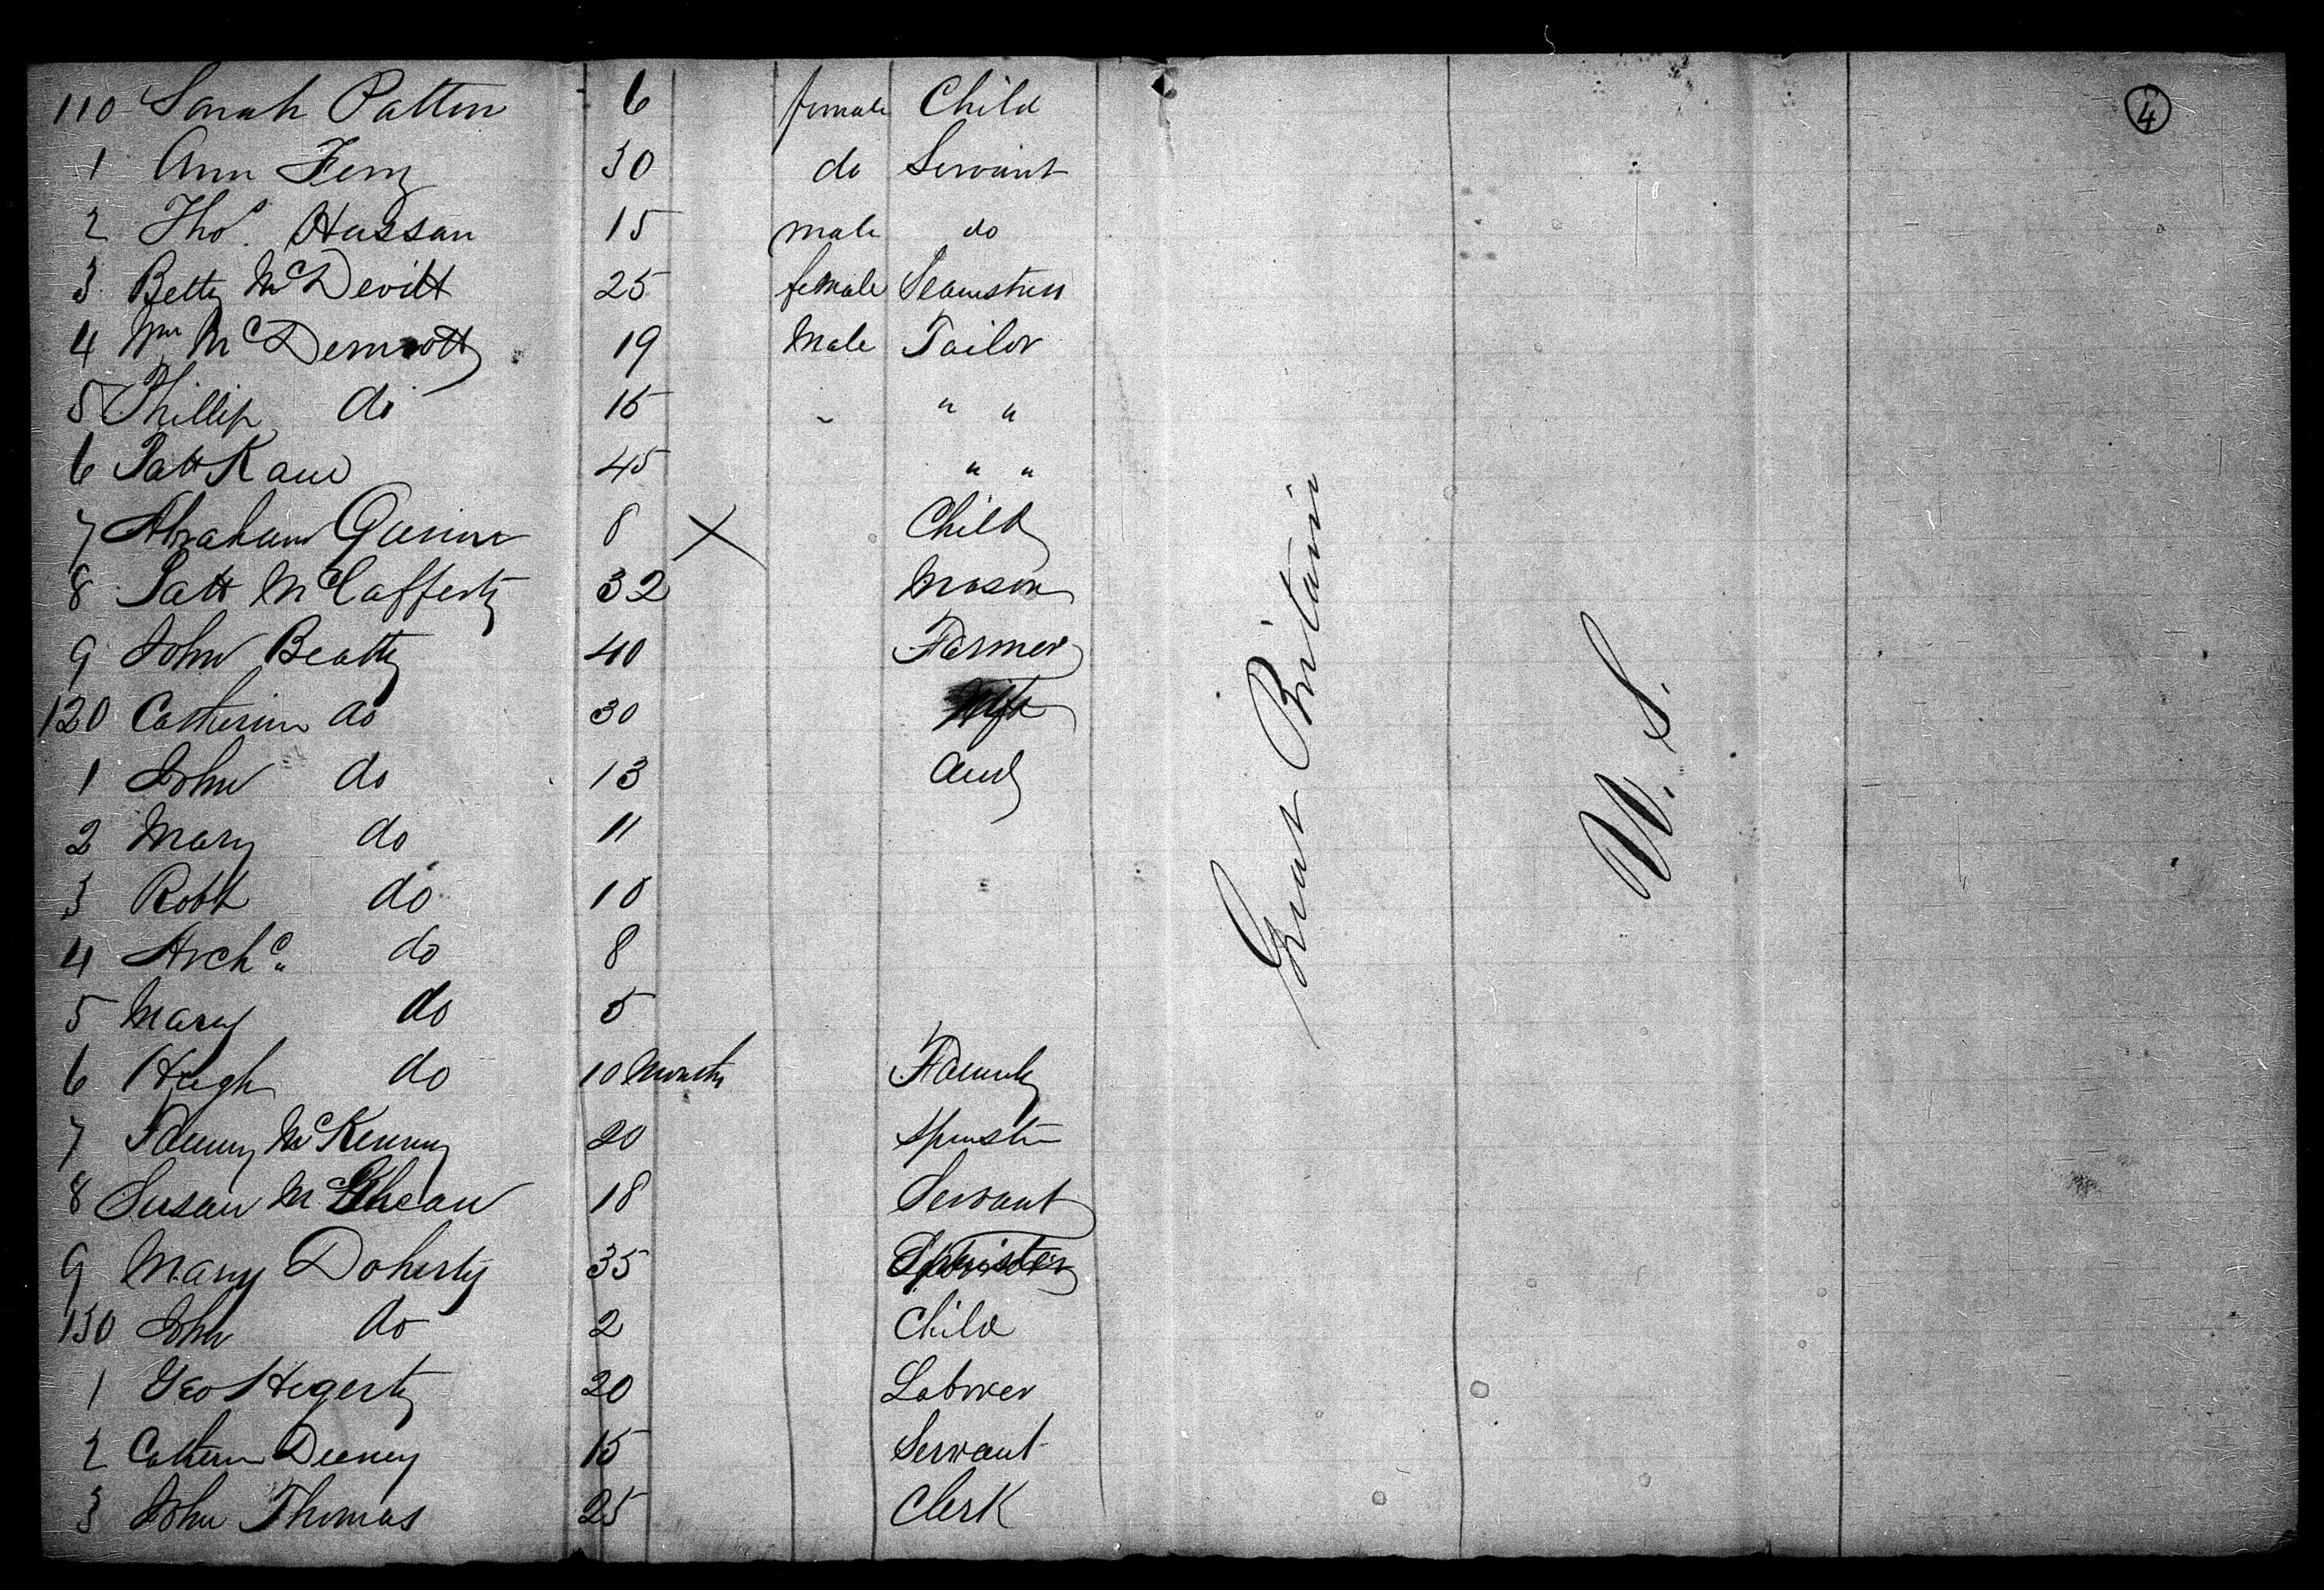 4
110 Sarah Patten 6 female Child
1 Ann Ferry 30 do Servant
2 Thos. Hassan 15 male do
3 Betty McDevitt 25 female Seamstress
4 Wm McDermott 19 Male Tailor
5 Phillip do 15 " "
6 Patt Kane 45 " "
7 Abraham 8 X Child
8 Patt McCafferty 32 Mason
9 John Beatty 40 Farmer
120 Catherine do 30 Wife
1 John do 13 and
2 Mary do 11
3 Robt do 10
4 Archd. do 8
5 Mary do 5
6 Hugh do 10 Months Family
7 Fanny McKenny 20 Spinster
8 Susan 18 Servant
9 Mary Doherty 35 Spinster
130 John do 2 Child
1 Geo Hegerty 20 Laborer
2 Cathern Deeney 15 Servant
3 John Thomas 25 Clerk
Great Britain
U. S.